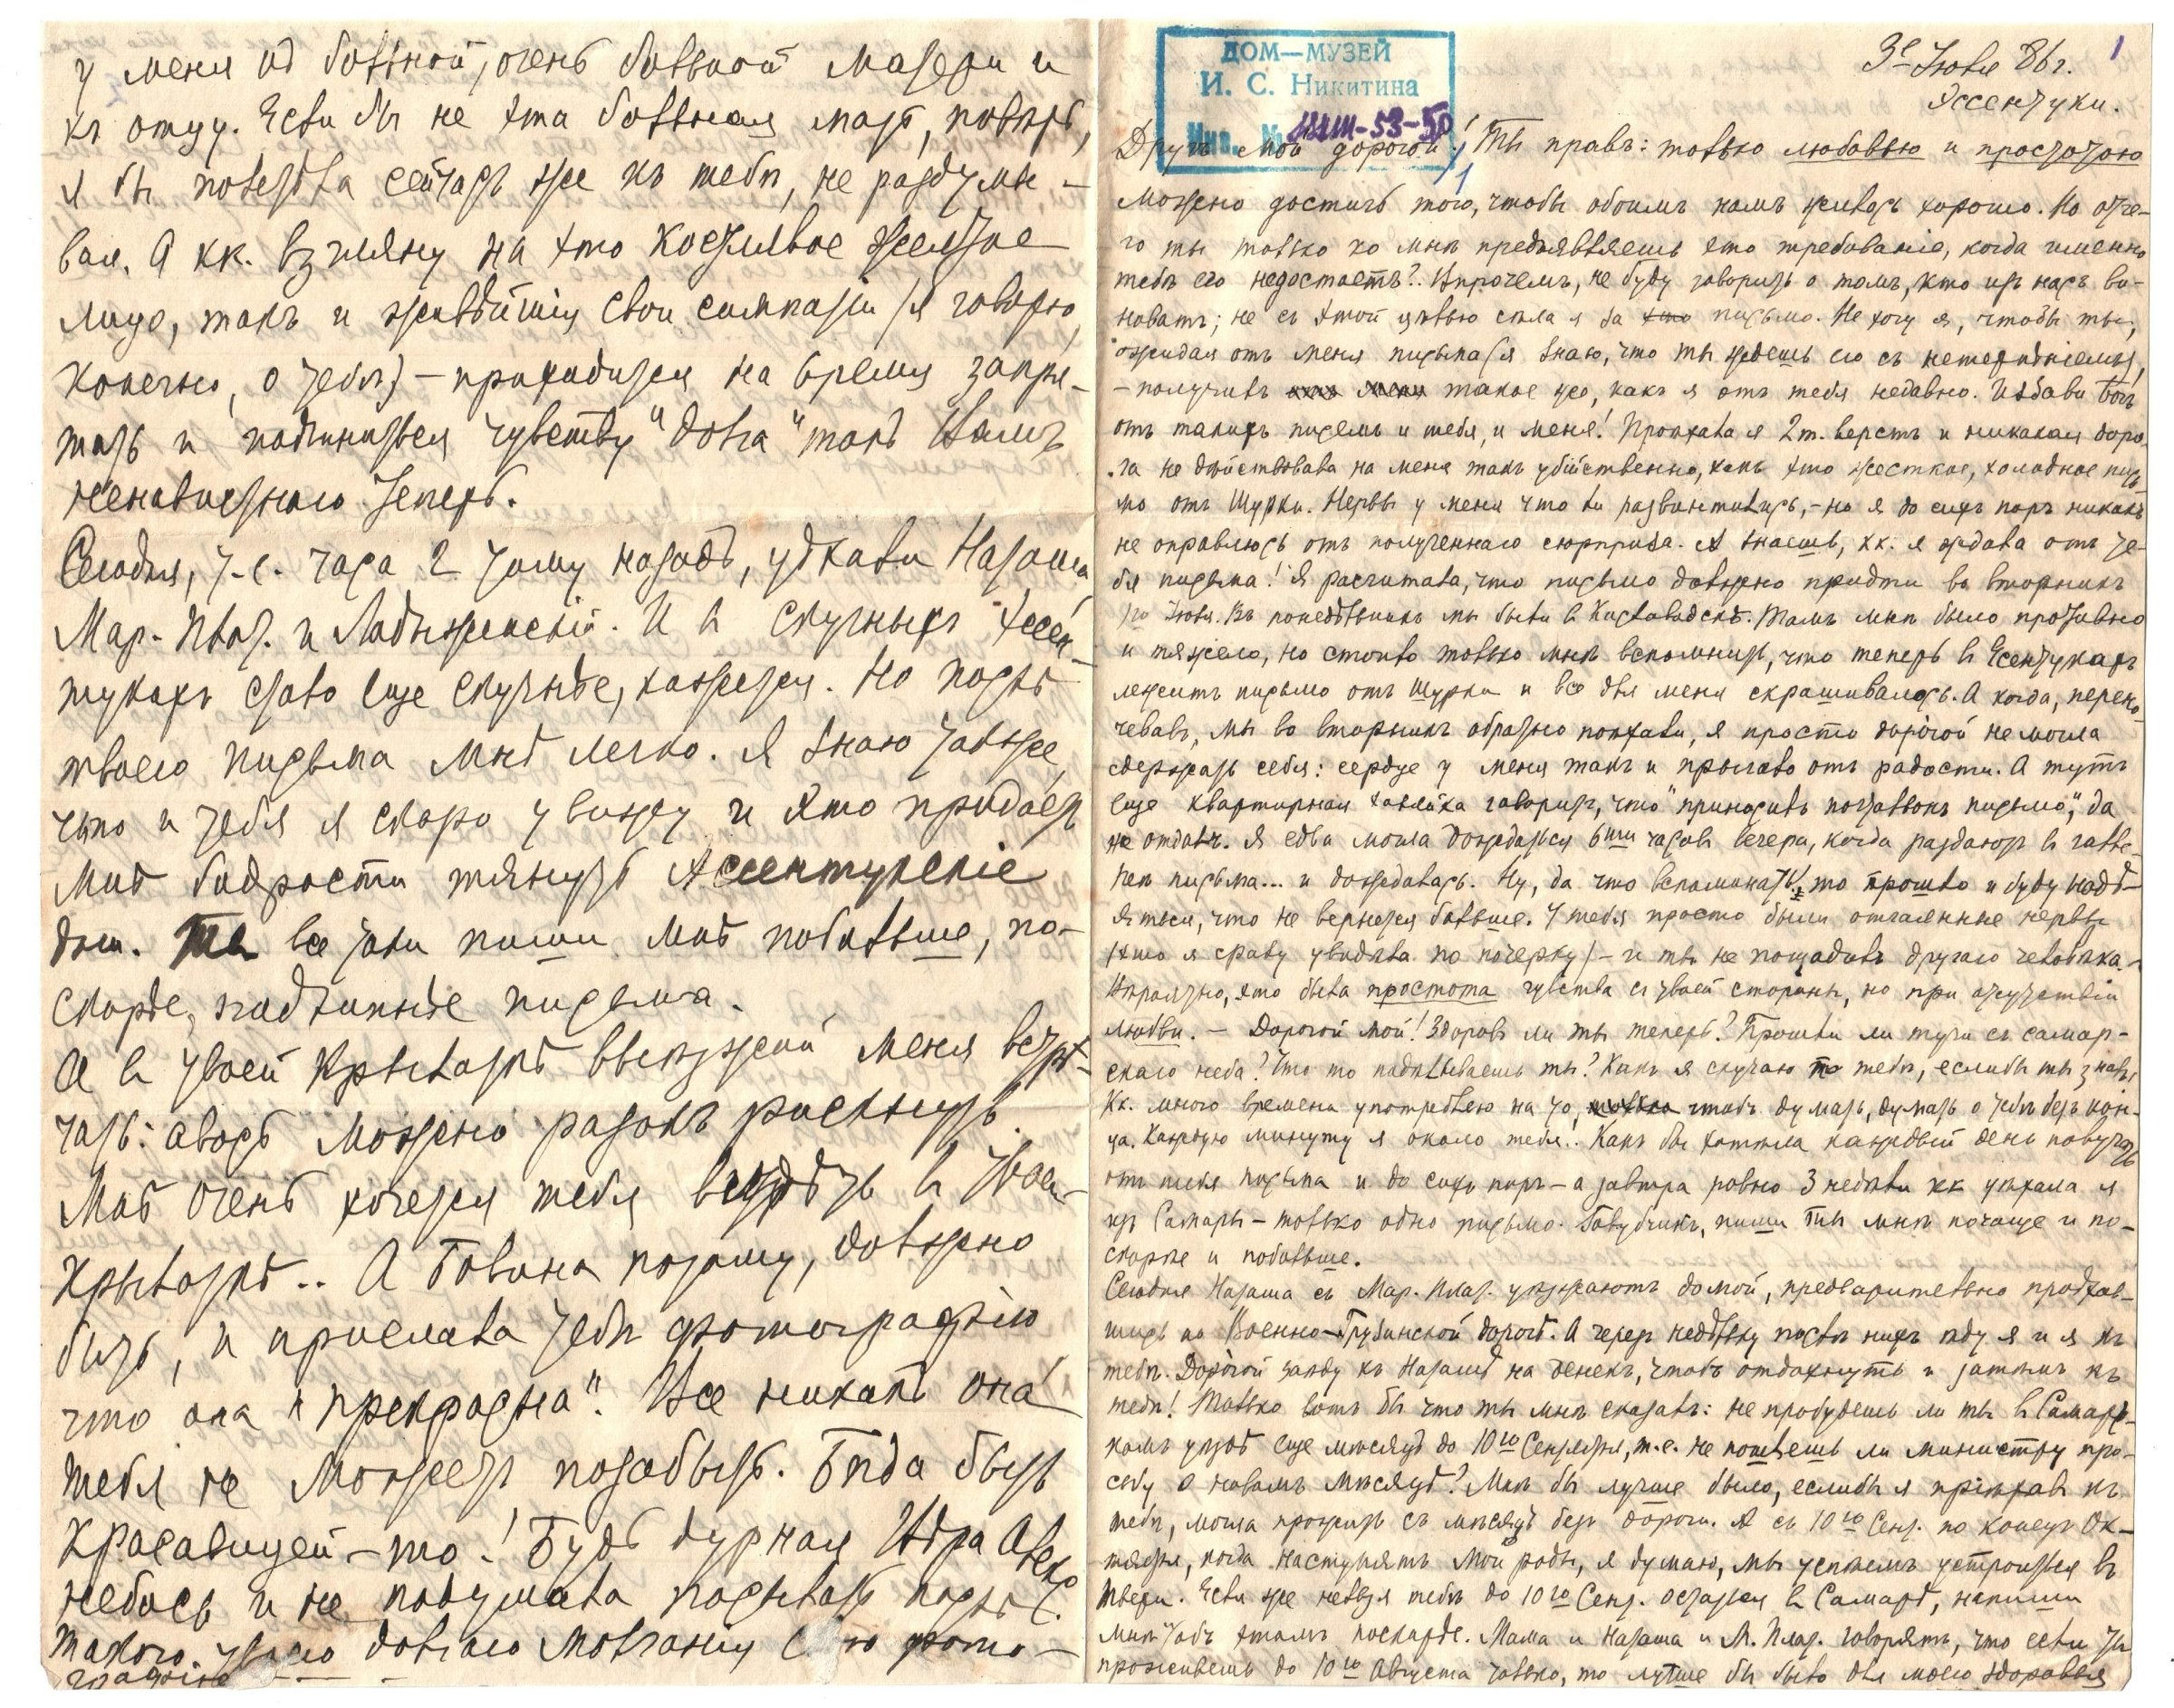 ДОМ—МУЗЕЙ
И. С. Никитина
Инв. №
1
3е Iюля 86 г.
Эссентуки.
Другъ мой дорогой! Ты правъ: только любовью и простотою
можно достичь того, чтобы обоимъ намъ жилось хорошо. Но отче-
го ты только ко мнѣ предъявляешь это требованiе, когда именно
тебѣ его недостаетъ?.. Впрочемъ, не буду говорить о томъ, кто изъ насъ ви-
новатъ; не съ этой цѣлью сѣла я за это письмо. Не хочу я, чтобы ты,
ожидая отъ меня письма (я знаю, что ты ждешь его съ нетерпѣнiемъ),
– получилъ такое же, какъ я отъ тебя недавно. Избави Богъ
отъ такихъ писемъ и тебя, и меня! Проѣхала я 2 т. верстъ и никакая доро-
га не дѣйствовала на меня такъ убiйственно, какъ это жесткое, холодное пись-
мо отъ Шурки. Нервы у меня что ли развинтились, – но я до сихъ поръ никакъ
не оправлюсь отъ полученнаго сюрприза. А знаешь, кк. я ждала отъ те-
бя письма! Я расчитала, что письмо должно придти во вторникъ
1го Iюля. Въ понедѣльникъ мы были в Кисловодскѣ. Тамъ мнѣ было противно
и тяжело, но стоило только мнѣ вспомнить, что теперь в Есентукахъ
лежитъ письмо отъ Шурки и все для меня скрашивалось. А когда, перено-
чевавъ, мы во вторникъ обратно поѣхали, я просто дорогой не могла
сдержать себя: сердце у меня такъ и прыгало отъ радости. А тутъ
еще квартирная хозяйка говоритъ, что "приносилъ почтальонъ письмо", да
не отдалъ. Я едва могла дождаться 6ти часовъ вечера, когда раздаютъ в галле-
реѣ письма... и дождалась. Ну, да что вспоминать! то прошло и буду надѣ-
яться, что не вернется больше. У тебя просто были отчаянные нервы
(это я сразу увидѣла по почерку) – и ты не пощадилъ другаго человѣка. –
Вѣроятно, это была простота чувства съ твоей стороны, но при отсутствiи
любви. – Дорогой мой! Здоровъ ли ты теперь? Прошли ли тучи съ самар-
скаго неба? Что то подѣлываешь ты? Какъ я скучаю по тебѣ, еслибы ты зналъ,
Кк. много времени употребляю на то, чтобъ думать, думать о тебѣ безъ кон-
ца. Каждую минуту я около тебя.. Какъ бы хотѣла каждый день получать
отъ тебя письма и до сихъ поръ – а завтра ровно 3 недѣли кк уѣхала я
изъ Самары – только одно письмо. Голубчикъ, пиши ты мнѣ почаще и по-
скорѣе и побольше.
Сегодня Наташа съ Мар. Плат. уѣзжаютъ домой, предварительно проѣхав-
шись по Военно-Грузинской дорогѣ. А черезъ недѣльку послѣ нихъ ѣду я и я къ
тебѣ. Дорогой заѣду къ Наташѣ на денекъ, чтобъ отдохнуть и затѣмъ къ
тебѣ! Только вотъ бы что ты мнѣ сказалъ: не пробудешь ли ты в Самарс-
комъ уѣздѣ еще мѣсяцъ до 10го Сентября, т.е. не пошлешь ли министру про-
сьбу о новомъ мѣсяцѣ? Мнѣ бы лучше было, еслибы я прiѣхавъ къ
тебѣ, могла прожить съ мѣсяцъ безъ дороги. А съ 10го Сент. по конецъ Ок-
тября, когда наступятъ мои роды, я думаю, мы успѣемъ устроиться въ
Твери. Если же нельзя тебѣ до 10го Сент. остаться в Самарѣ, напиши
мнѣ объ этомъ поскорѣе. Мама и Наташа и М. Плат. говорятъ, что если ты
проживешь до 10го Августа только, то лучше бы было для моего здоровья
у меня от больной, очень больной матери и
къ отцу. Если бы не эта больная мать, повѣрь,
я бы полетѣла сейчасъ же къ тебѣ, не раздумы-
вая. А кк. взгляну на это костлявое желтое
лицо, такъ и живѣйшiя свои симпатiи (я говорю,
конечно, о тебѣ) – приходится на время запря-
тать и подчиниться чувству "долга" такъ
ненавистнаго теперь.
Сегодня, т.е. часа 2 тому назадъ, уѣхали Наташа,
Мар. Плат. и Ладыженскiй. И в скучныхъ Эссен-
тукахъ стало еще скучнѣе, кажется. Но послѣ
твоего письма мнѣ легко. Я знаю также,
что и тебя я скоро увижу и это придаетъ
мнѣ бодрости тянуть Ассентукскiе
дни. Ты все таки пиши мнѣ побольше, по-
скорѣе, подлиннѣе письма.
А в твоей Крылаткѣ выѣзжай меня встрѣ-
чать: авось можно разокъ рискнуть.
Мнѣ очень хочется тебя встрѣтить в твоей
Крылаткѣ.. А потому, должно
быть, и прислала тебѣ фотографiю
что она "прекрасна". Все никакъ она
тебя не можетъ позабыть. Бѣда быть
красавицей-то! Будь дурная
небось и не подумала посылать послѣ
такого твоего долгаго молчанiя свою фото-
графiю